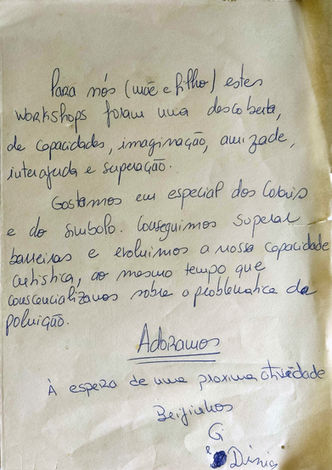 Para nós (mãe e filho) estes
workshops foram uma descoberta,
de capacidades, imaginação, amizade,
interajuda e superação.
Gostamos em especial dos Corais
e do Símbolo. Conseguimos superar
barreiras e evoluimos a nossa capacidade
artística, ao mesmo tempo que
consciencializamos sobre o problemática da
poluição.
Adoramos
À espera de uma proxima atividade
Beijinhos
G
e Dinis